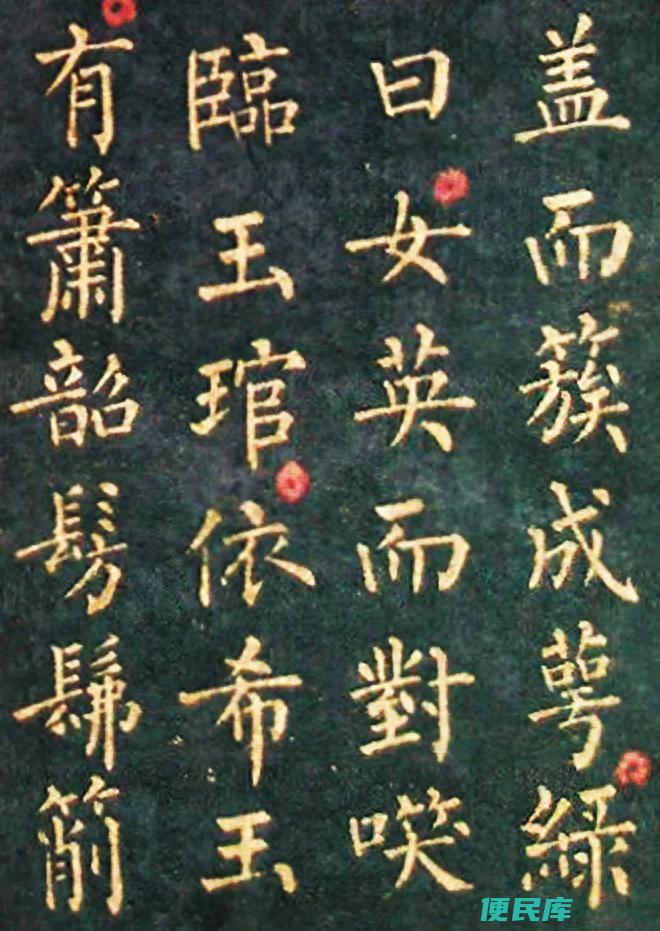 盖而簇成萼綠
曰女英而對𥬇
臨玉琯依希玉
有簫韶髣髴筩
便民库